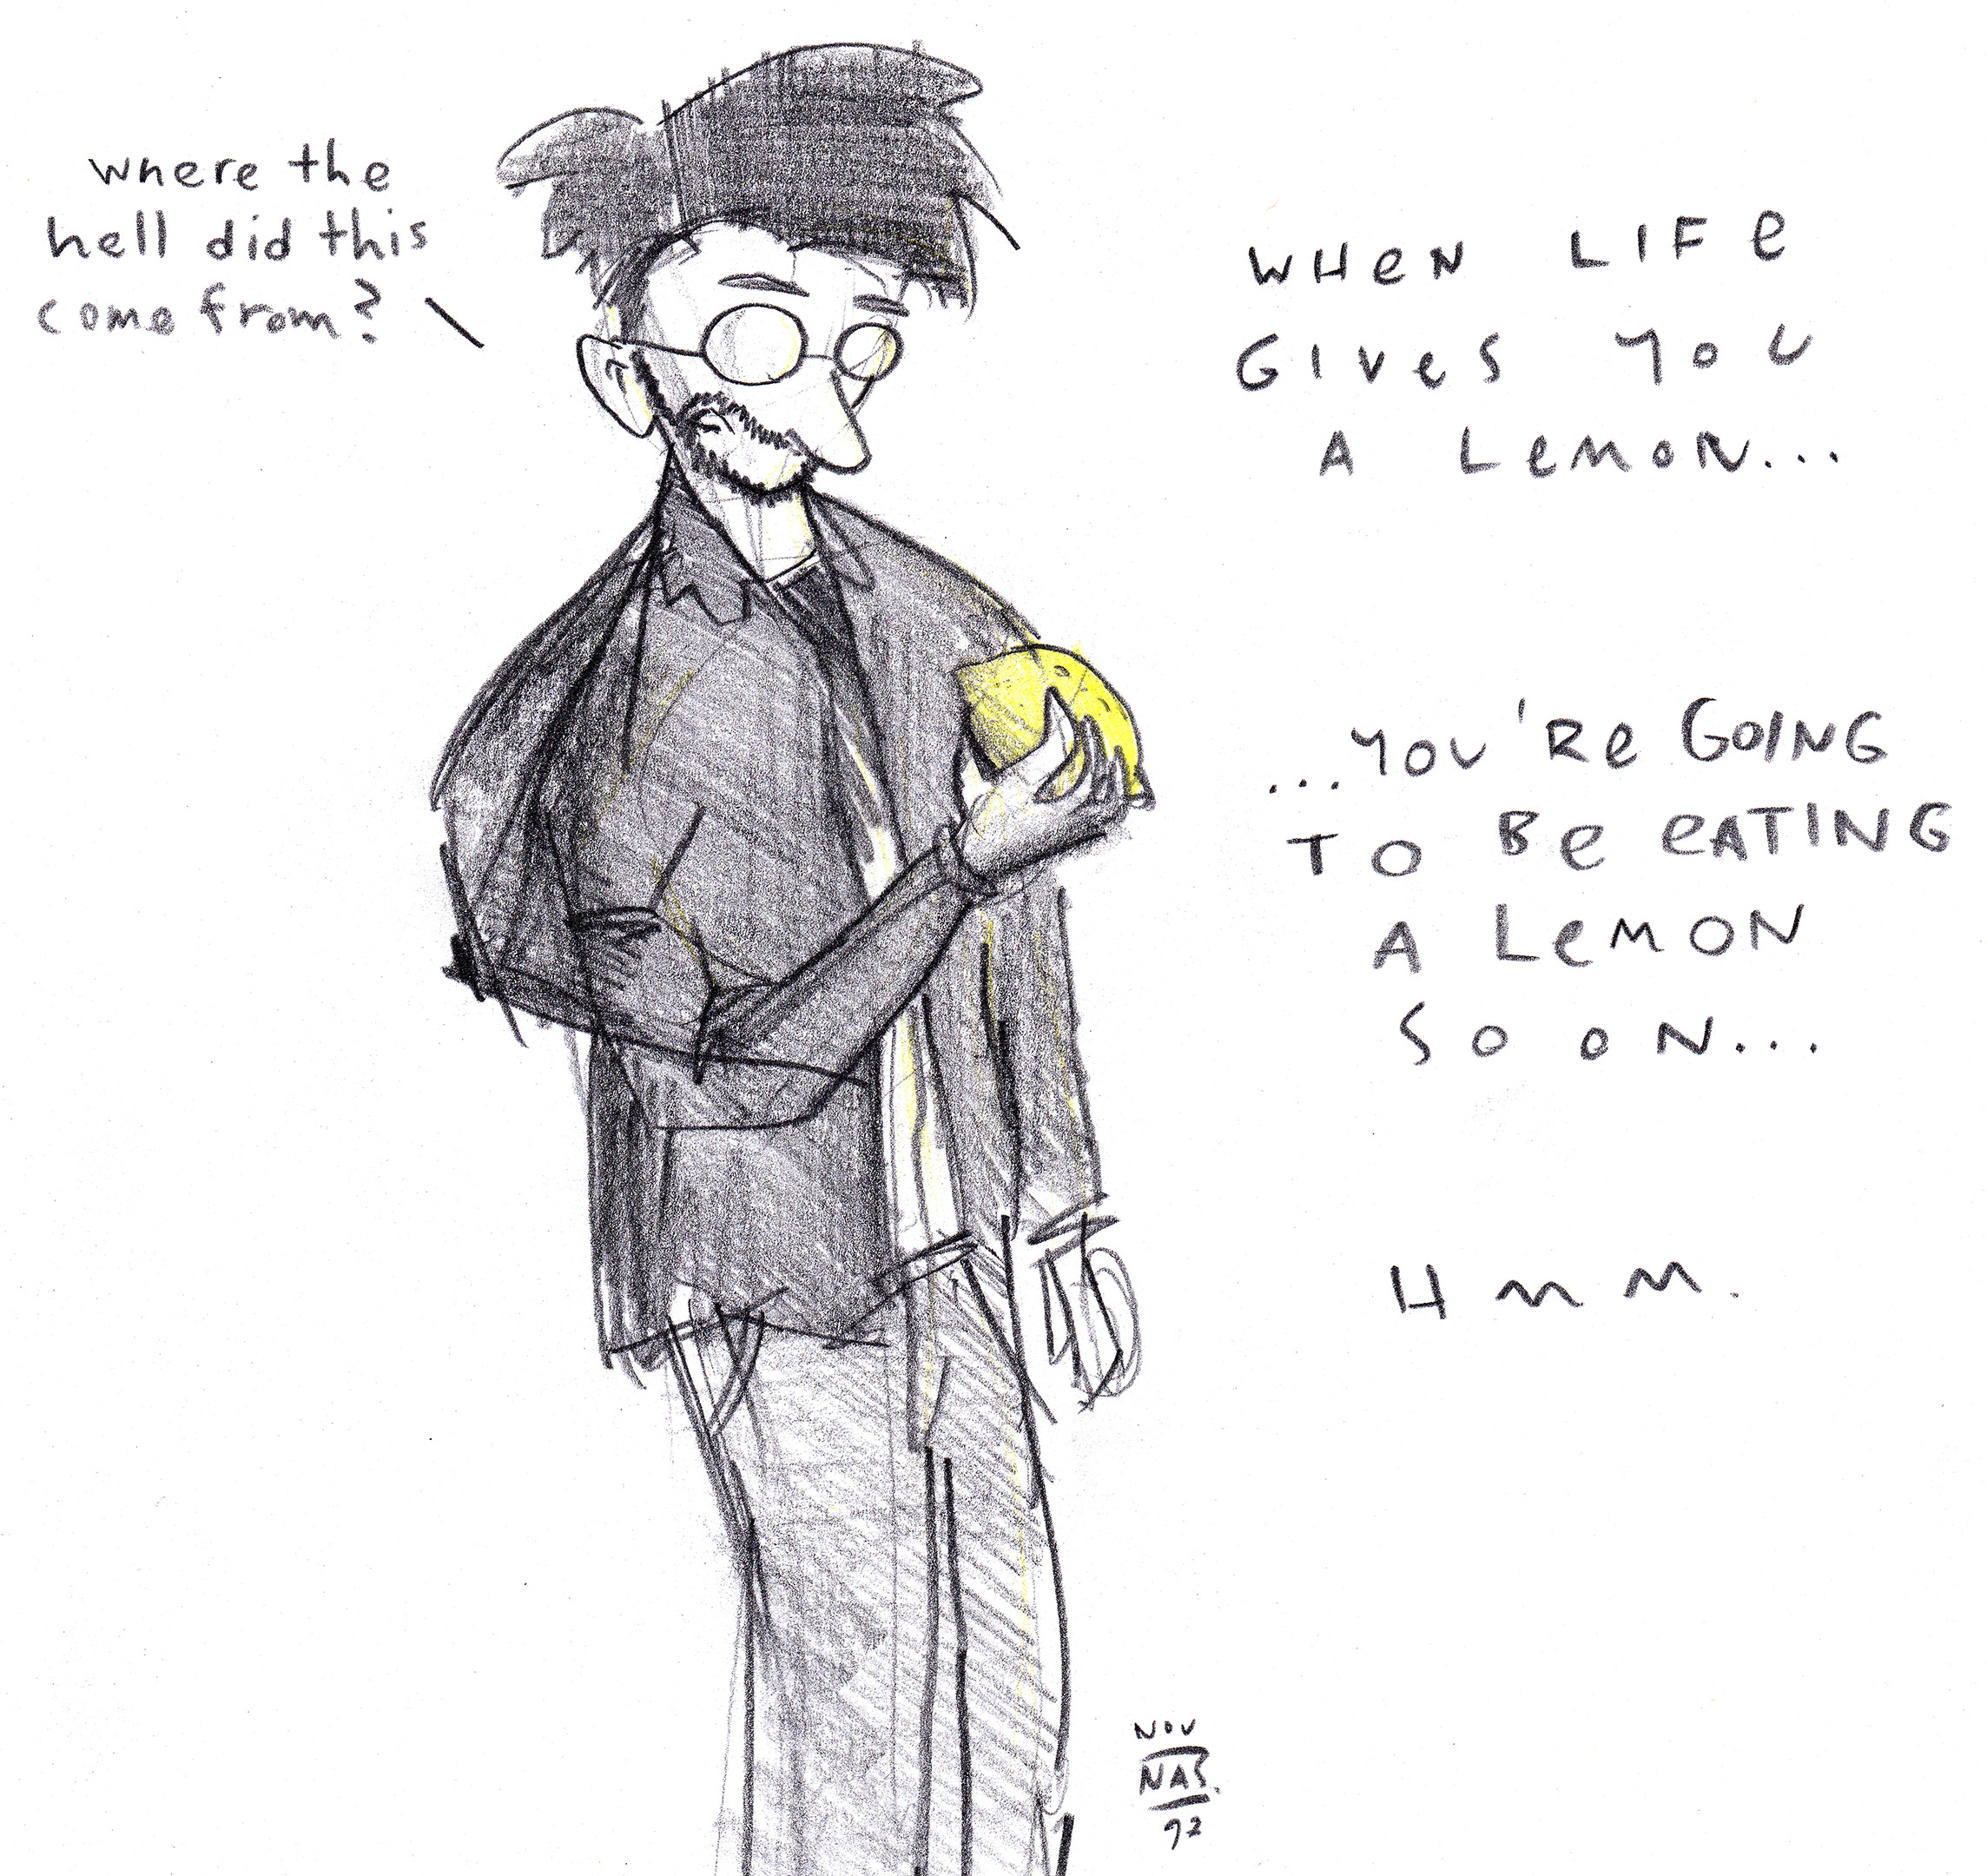 where the
hell did this
come from?
WHeN LIFe
GIVeS YOU
A LeMON...
...YOU'Re GOING
TO Be eATING
A LeMON
SOON...
HMM.
NOV
92